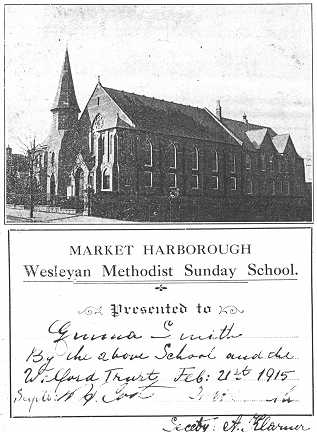 MARKET HARBOROUGH
Wesleyan Methodist Sunday School.
Presented to
Emma Smith
By the above School and the
Wilford Trust, Feb: 21st 1915
Secety: A.